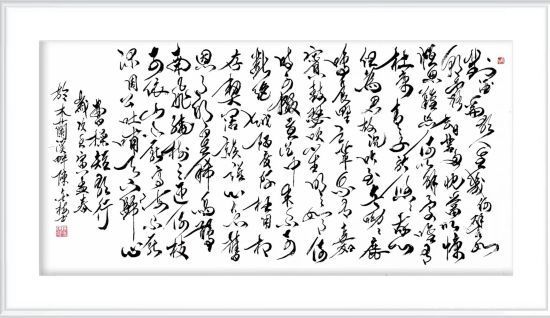 對酒當歌人生幾何譬如
朝露去日苦多慨當以慷
憂思難忘何以解憂唯有
杜康青青子衿悠悠我心
但為君故沉吟至今呦呦鹿
鳴食野之苹我有嘉
賓鼓瑟吹笙明明如月何
時可掇憂從中來不可
斷絕越陌度阡枉用相
存契闊談讌心念舊
恩月明星稀烏鵲
南飛繞樹三匝何枝
可依山不厭高海不厭
深周公吐哺天下歸心
曹操短歌行
歲次寅春
於木蘭溪畔陳